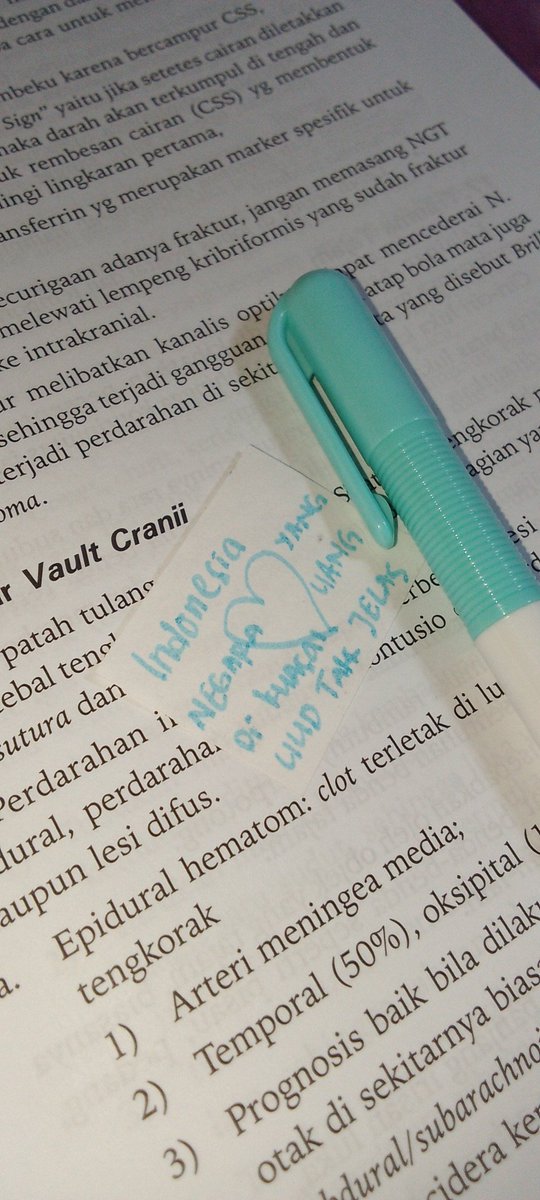 dengan
cara untuk
beku karena bercampur CSS,
Sign" yaitu jika setetes cairan diletakkan
maka darah akan terkumpul di tengah dan
uk rembesan cairan (CSS) yg membentuk
lingi lingkaran pertama,
ansferrin yg merupakan marker spesifik untuk
ecurigaan adanya fraktur, jangan memasang NGT
melewati lempeng kribriformis yang sudah fraktur
ke intrakranial.
ur melibatkan kanalis optik pat mencederai N.
sehingga terjadi gangguan atap bola mata juga
terjadi perdarahan di sekit ta yang disebut Brill
oma.
engkorak
r Vault Cranii
agian yan
patah tulang
esi
ebal teng
erbe
sutura dan
ontusio
Indonesia
NEGARA YANG
Di KUACAI UANG
UUD TAK JELAS
Perdarahan i
dural, perdaraha
aupun lesi difus.
a. Epidural hematom: clot terletak di lu
tengkorak
1) Arteri meningea media;
2) Temporal (50%), oksipital (1
3) Prognosis baik bila dilaku
otak di sekitarnya biasa
bdural/subarachnoi
sidera ke